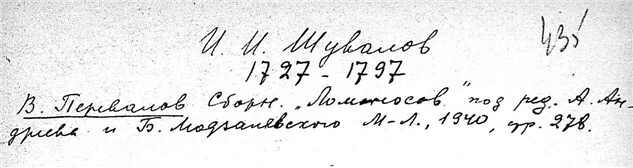 И. И. Шувалов 435
1727 - 1797
В. Перевалов Сборн. „Ломоносов" под ред. А. Ан-
дреева и Б. Модзалевского М-Л., 1940, стр. 278.